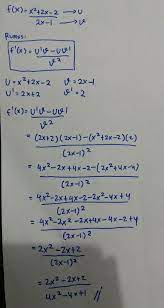 f(x) = x²+2x-2 → U
2x-1 → V
Rumus:
f'(x) = U'V - UV'
V²
U = x²+2x-2 V = 2x-1
U' = 2x+2 V' = 2
f'(x) = U'V - UV'
V²
= (2x+2)(2x-1) - (x²+2x-2)(2)
(2x-1)²
= 4x²-2x+4x-2 - (2x²+4x-4)
(2x-1)²
= 4x²-2x+4x-2-2x²-4x+4
(2x-1)²
= 4x²-2x²-2x+4x-4x-2+4
(2x-1)²
= 2x²-2x+2
(2x-1)²
= 2x²-2x+2
4x²-4x+1 //